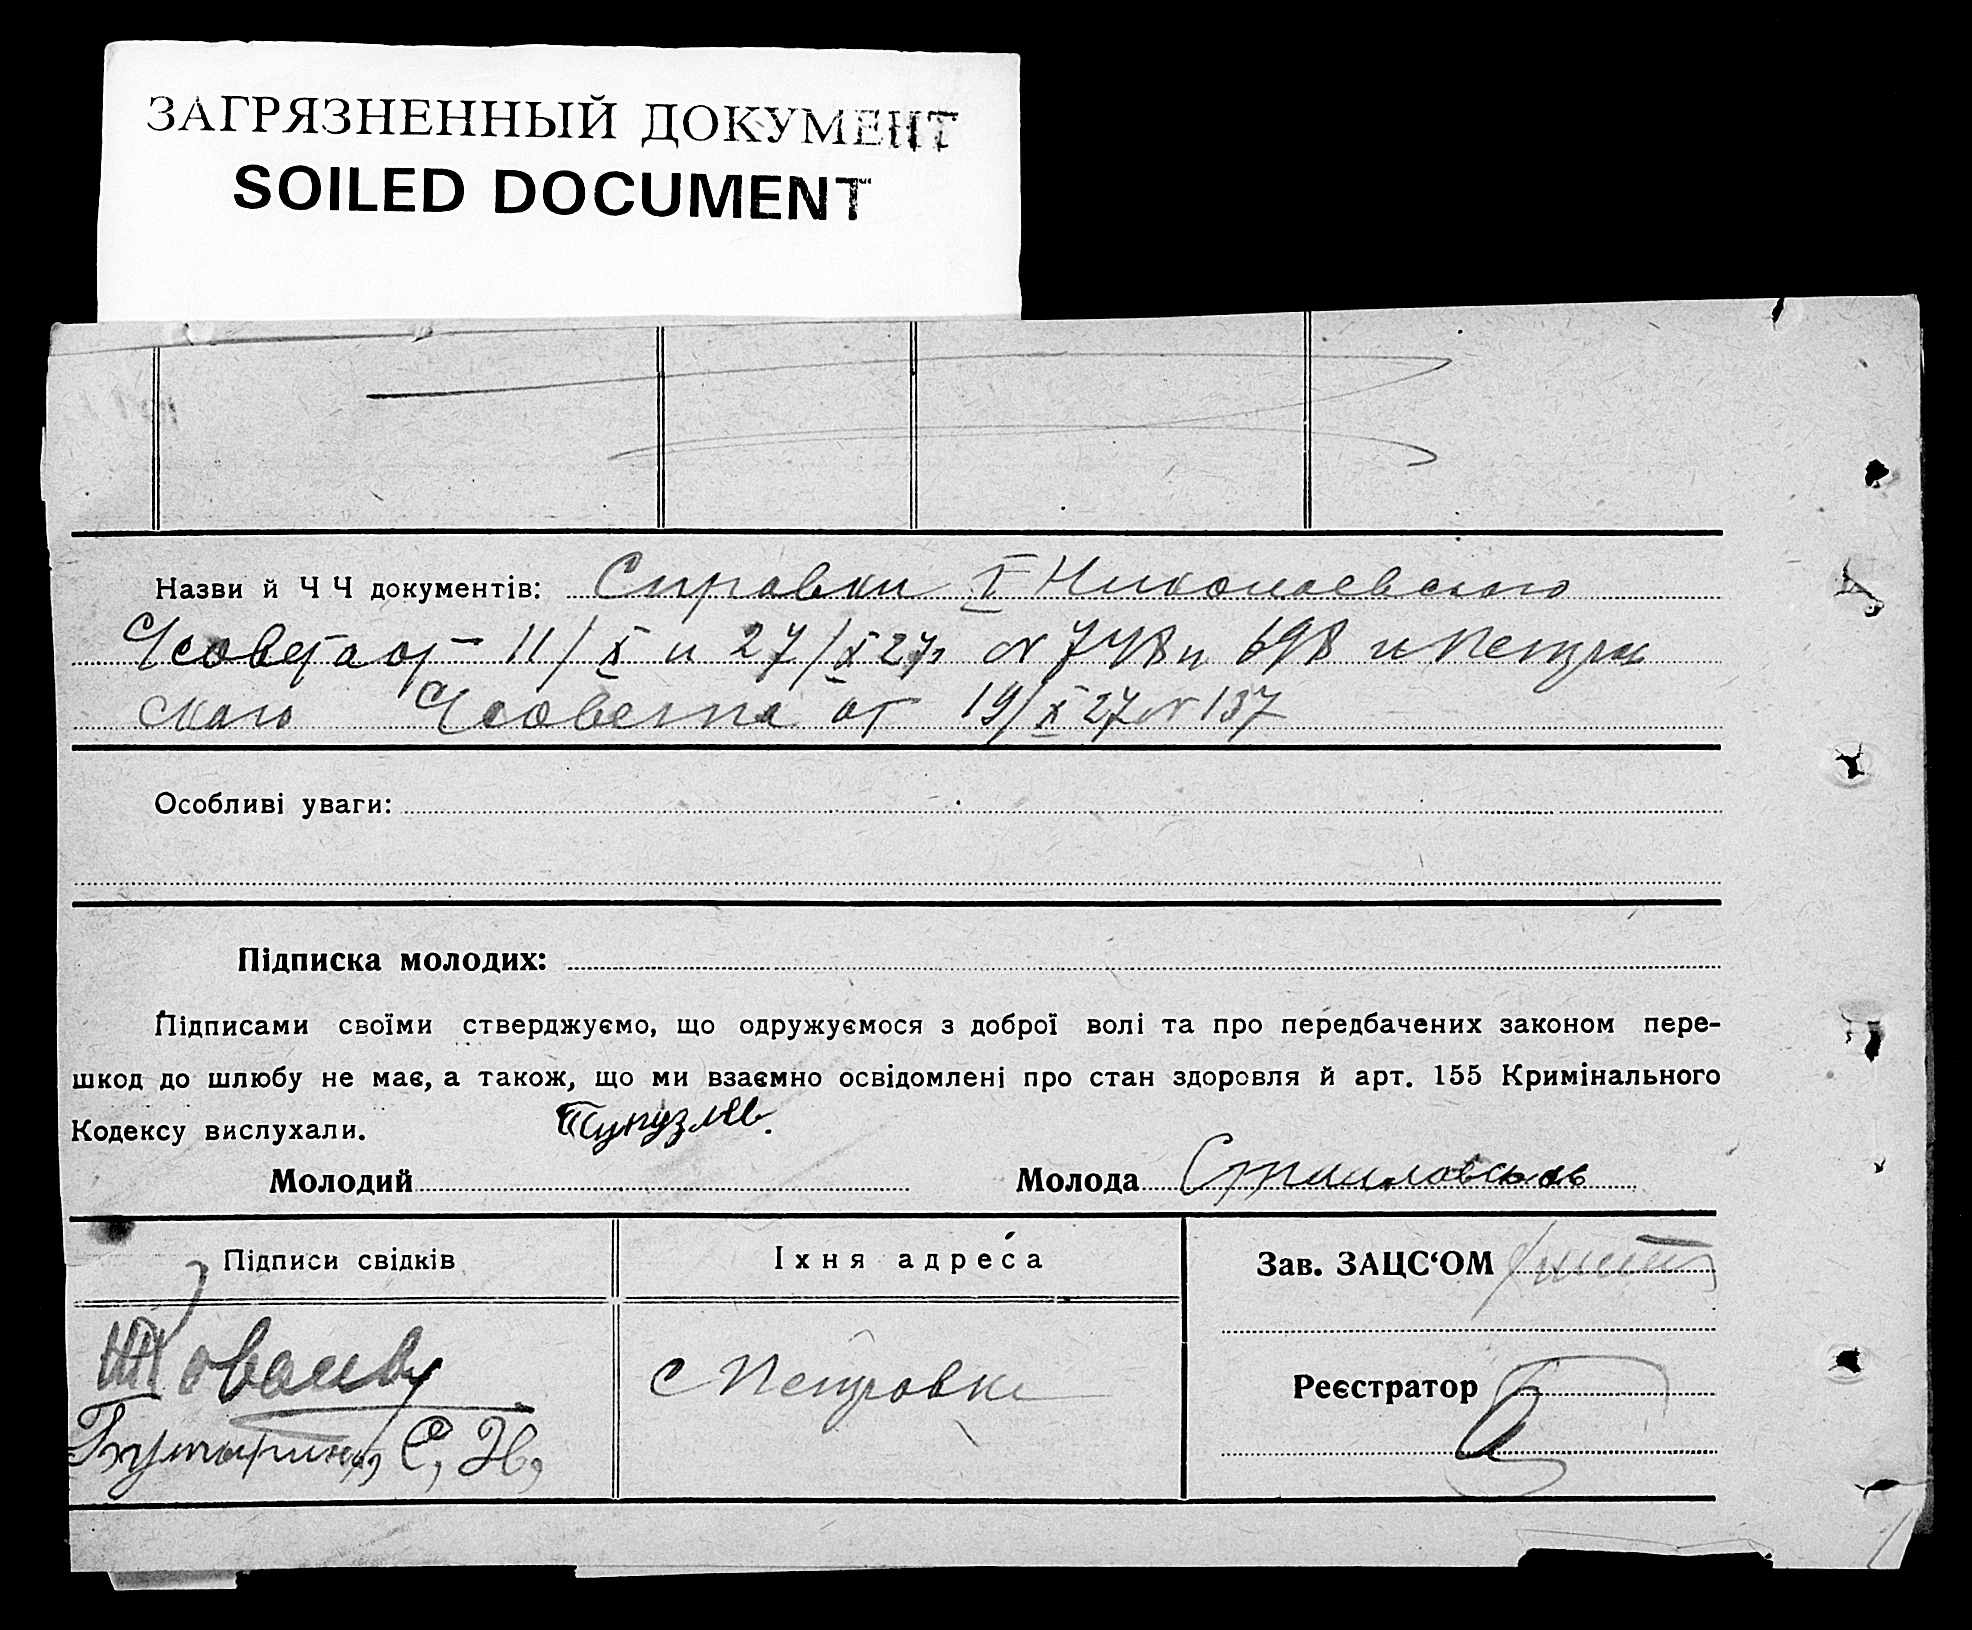 ЗАГРЯЗНЕННЫЙ ДОКУМЕНТ
SOILED DOCUMENT
Назви й Ч Ч документів: Справки I Николаевского
от 11/X и 27/X 27г. № 748 и 698 и Петров
ского от 19/X 27 № 137
Особливі уваги:
Підписка молодих:
Підписами своїми стверджуємо, що одружуємося з доброї волі та про передбачених законом пере-
шкод до шлюбу не має, а також, що ми взаємно освідомлені про стан здоровля й арт. 155 Кримінального
Кодексу вислухали.
Молодий
Молода
Підписи свідків
Їхня адреса
Зав. ЗАЦС‘ОМ
с Петровка
Реєстратор